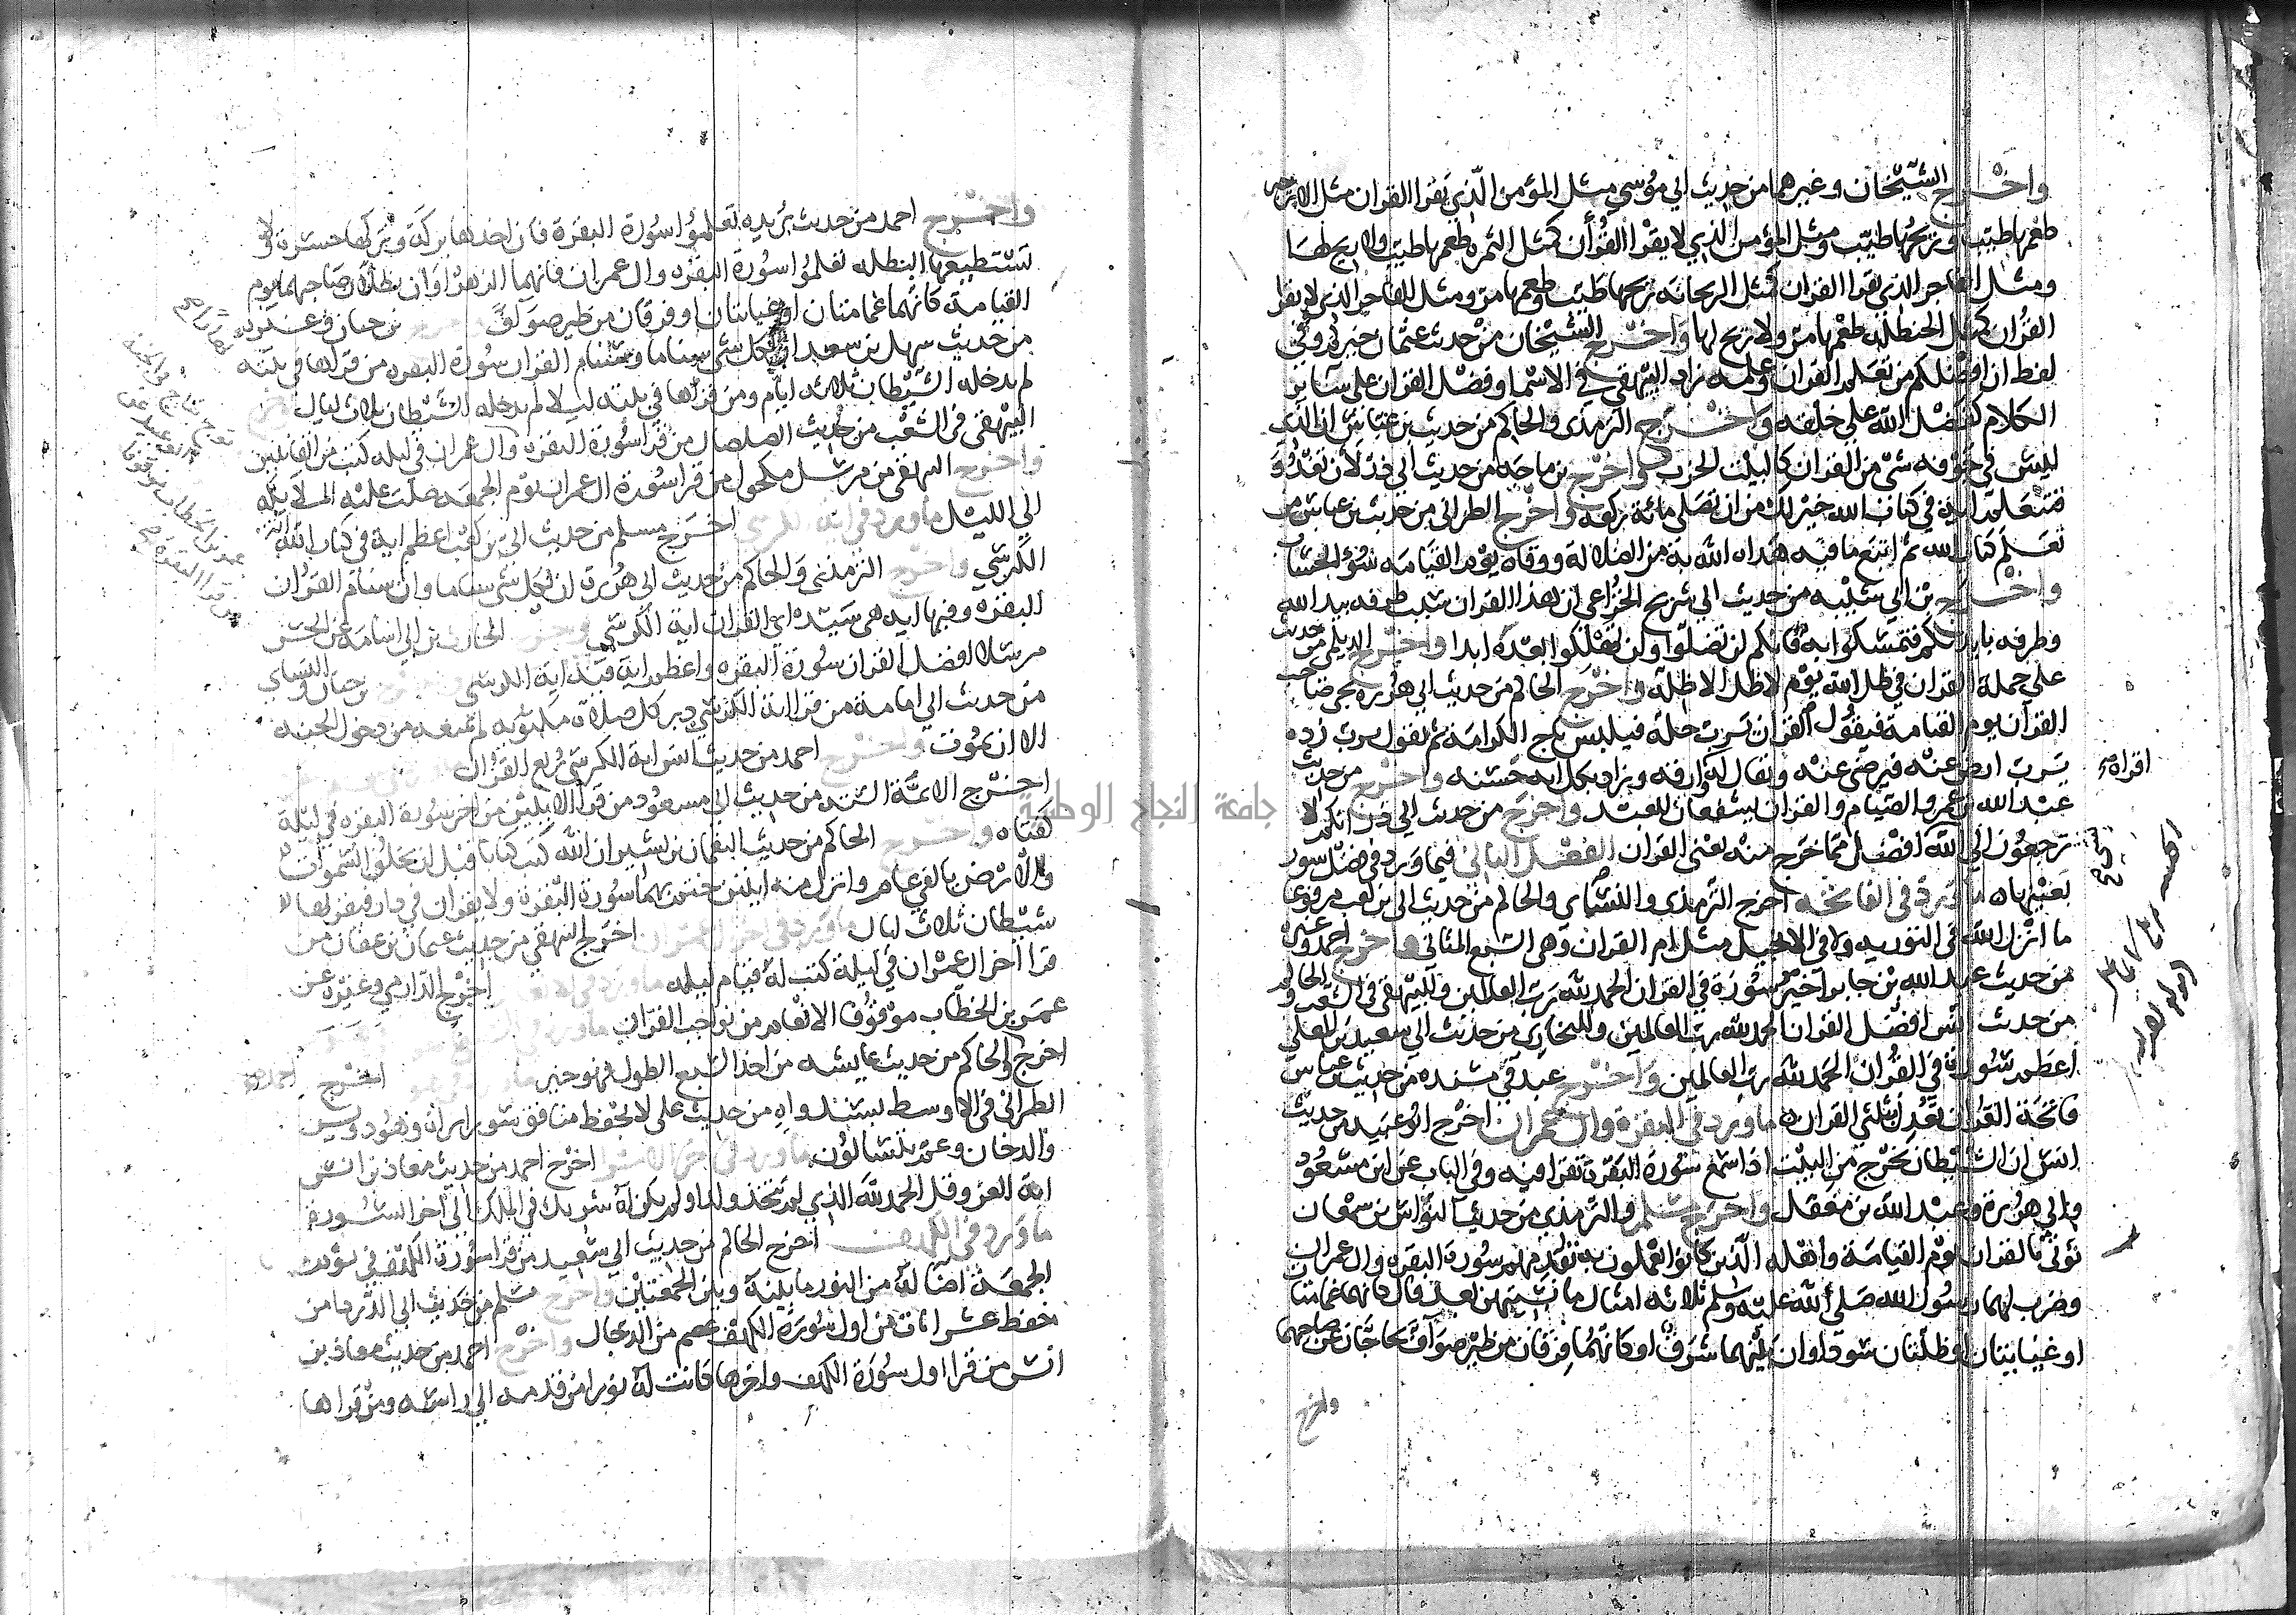 واخرج الشيخان وغيرهما من حديث ابي موسي مثل المؤمن الذي يقرا القران مثل الاترجه
طعمها طيب وريحها طيب ومثل المؤمن الذي لا يقرا القرأن كمثل التمره طعمها طيب ولا ريح لها
ومثل الفاجر الذي يقرا القران كمثل الريحانه ريحها طيب وطعمها مر ومثل الفاجر الذي لا يقرا
القران كمثل الحنظله طعمها مر ولا ريح لها واخرج الشيخان من حديث عثمان خيركم وفي
لفظ ان افضلكم من تعلم القران وعلمه زاد البيهقي في الاسما وفضل القران علي ساير
الكلام كفضل الله علي خلقه واخرج الترمذي والحاكم من حديث بن عباس ان الذي
ليس في جوفه شي من القران كالبيت الخرب واخرج بن ماجه من حديث ابي ذر لأن تغدو
فتتعلم اية في كتاب الله خير لك من ان تصلي مائة ركعه واخرج الطبراني من حديث بن عباس من
تعلم كتاب الله ثم اتبع ما فيه هداه الله به من الضلالة ووقاه يوم القيامه سؤ الحساب
واخرج بن ابي شيبه من حديث ابي شريح الخزاعي ان هذا القران سبب طرفه بيد الله
وطرفه بايديكم فتمسكوا به فانكم لن تضلوا ولن تهلكوا بعده ابدا واخرج الديلمي من حديث
علي حملة القران في ظل الله يوم لا ظل الا ظله واخرج الحاكم من حديث ابي هريره يجي صاحب
القرآن يوم القيامة فيقول القرآن يرب حله فيلبس تاج الكرامة ثم يقول يرب زده
يرب ارض عنه فيرضي عنه ويقال له اقراه وارقه ويزاد بكل ايه حسنه واخرج من حديث
عبد الله بن عمرو الصيام والقران يشفعان للعبد واخرج من حديث ابي ذر انكم لا
ترجعون الي الله بشي افضل مما خرج منه يعني القران الفصل الثاني فيما ورد في فضل سور
بعينها ما ورد في الفاتحه اخرج الترمذي والنساي والحاكم من حديث ابي بن كعب مرفوعا
ما انزل الله في التوريه ولا في الانجيل مثل ام القران وهي السبع المثاني واخرج احمد وغيره
من حديث عبد الله بن جابر اخير سورة في القران الحمد لله رب العالمين وللبيهقي في الشعب والحاكم
من حديث انس افضل القران الحمد لله رب العالمين وللبخاري من حديث ابي سعيد بن المعلي
اعظم سورة في القران الحمد لله رب العالمين واخرج عبد في مسنده من حديث بن عباس
فاتحة القران تعدل بثلثي القران ما ورد في البقرة وال عمران اخرج ابو عبيد من حديث
انس ان الشيطان يخرج من البيت اذا سمع سورة البقرة تقرا فيه وفي الباب عن ابن مسعود
وابي هريرة وعبد الله بن مغفل واخرج مسلم والترمذي من حديث النواس بن سمعان
يؤتي بالقران يوم القيامة واهله الذين كانوا يعملون به تقدمهم سورة البقره وال عمران
وضرب لهما رسول الله صلي الله عليه وسلم ثلاثه امثال ما نسيتهن بعد قال كانهما غمامتان
او غيايتان او ظلتان سوداوان بينهما شرق او كانهما فرقان من طير صواف يحاجان عن صاحبهما
واخرج
واخرج احمد من حديث بريده تعلموا سورة البقرة فان اخذها بركة وتركها حسرة ولا
تستطيعها البطله تعلموا سورة البقره وال عمران فانهما الزهراوان يظلان صاحبهما يوم
القيامة كانهما غمامتان او غيايتان او فرقان من طير صواف واخرج بن حبان وغيره
من حديث سهل بن سعيد ان لكل شي سناما وسنام القران سورة البقره من قراها في بيته نهارا
لم يدخله الشيطان ثلاثه ايام ومن قراها في بيته ليلا لم يدخله الشيطان ثلاث ليال واخرج
البيهقي في الشعب من حديث الصلصال من قرا سورة البقره توج بتاج في الجنة
وال عمران في ليله كتب من القانتين
واخرج البيهقي من مرسل مكحول من قرا سورة ال عمران يوم الجمعه صلت عليه الملايكه
الي الليل ما ورد في ايه الكرسي اخرج مسلم من حديث ابي بن كعب اعظم اية في كتاب الله اية
الكرسي واخرج الترمذي والحاكم من حديث ابي هريرة ان لكل شي سناما وان سنام القران
البقره وفيها ايه هي سيدة اي القران اية الكرسي واخرج الحارث بن ابي اسامة عن الحسن
مرسلا افضل القران سورة البقره واعظم اية فيه اية الكرسي واخرج بن حبان والنساي
من حديث ابي امامة من قرا اية الكرسي دبر كل صلاة مكتوبه لم يمنعه من دخول الجنه
الا ان يموت واخرج احمد من حديث انس اية الكرسي ربع القران
اخرج الائمة الستة من حديث ابي مسعود من قرا الايتين من اخر سورة البقره في ليلة
كفتاه واخرج الحاكم من حديث النعمان بن بشير ان الله كتب كتابا قبل ان يخلق السموات
والارض بالفي عام وانزل منه ايتين ختم بهما سورة البقرة ولا يقران في دار فيقربها
شيطان ثلاث ليال ما ورد في اخر ال عمران اخرج البيهقي من حديث عثمان بن عفان من
قرا اخر ال عمران في ليلة كتب له قيام ليله ما ورد في الانعام اخرج الدارمي وغيره عن
عمر بن الخطاب موقوفا الانعام من نواجب القران ما ورد في السبع الطول
اخرج احمد والحاكم من حديث عايشه من اخذ السبع الطول فهو خير ما ورد في هود اخرج
الطبراني في الاوسط بسند واه من حديث علي لا يحفظ منافق سور براءة وهود ويس
والدخان وعم يتسالون ما ورد في اخر الاسرا اخرج احمد من حديث معاذ بن انس
اية العز وقل الحمد لله الذي لم يتخذ ولدا ولم يكن له شريك في الملك الي اخر السورة
ما ورد في الكهف اخرج الحاكم من حديث ابي سعيد من قرا سورة الكهف في يوم
الجمعة اضا له من النور ما بينه وبين الجمعتين واخرج مسلم من حديث ابي الدرداء من
حفظ عشر ايات من اول سورة الكهف عصم من الدجال واخرج احمد من حديث معاذ بن
انس من قرا اول سورة الكهف واخرها كانت له نورا من قدمه الي راسه ومن قراها
جامعة النجاح الوطنية